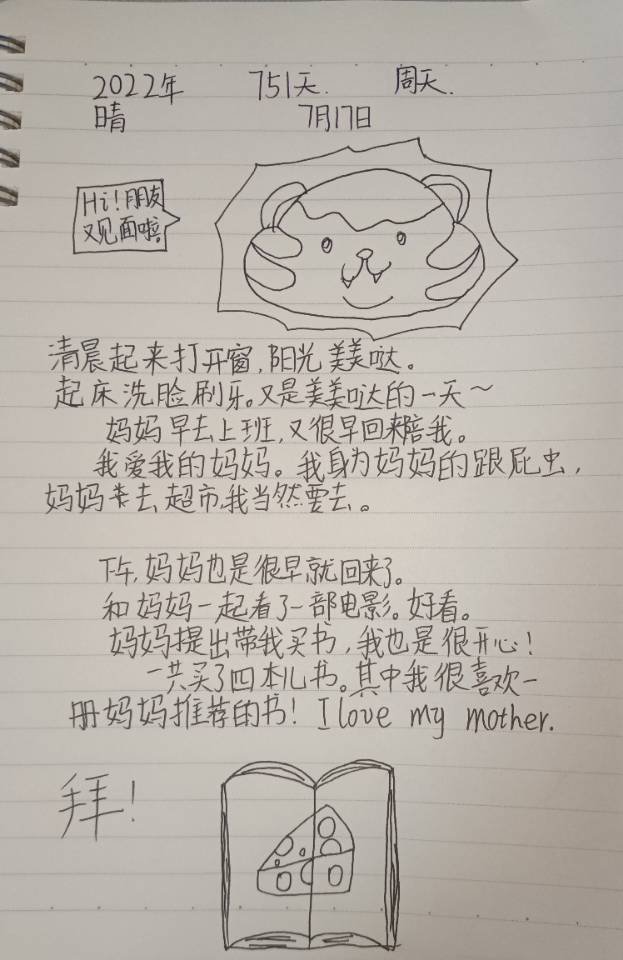 2022年 751天. 周天.
晴 7月17日
Hi!朋友
又见面啦!
清晨起来打开窗,阳光美美哒。
起床洗脸刷牙。又是美美哒的一天~
妈妈早去上班,又很早回来陪我。
我爱我的妈妈。我身为妈妈的跟屁虫,
妈妈去超市,我当然要去。
下午,妈妈也是很早就回来了。
和妈妈一起看了一部电影。好看。
妈妈提出带我买书,我也是很开心!
一共买了四本儿书。其中我很喜欢一
册妈妈推荐的书! I love my mother.
拜!